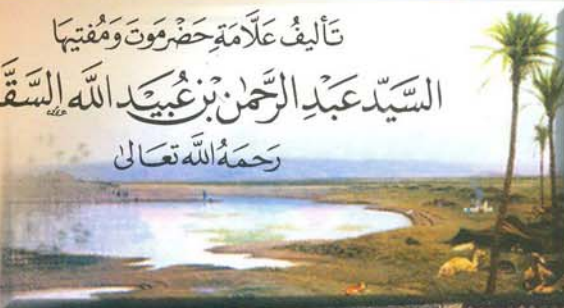 تَأليفُ عَلَّامَةِ حَضْرَمَوتَ وَمُفتِيهَا
السَّيِّد عَبْدِ الرَّحمٰن بْن عُبَيْد اللَّه السَّقَّ
رَحمَهُ اللَّه تَعَالىٰ